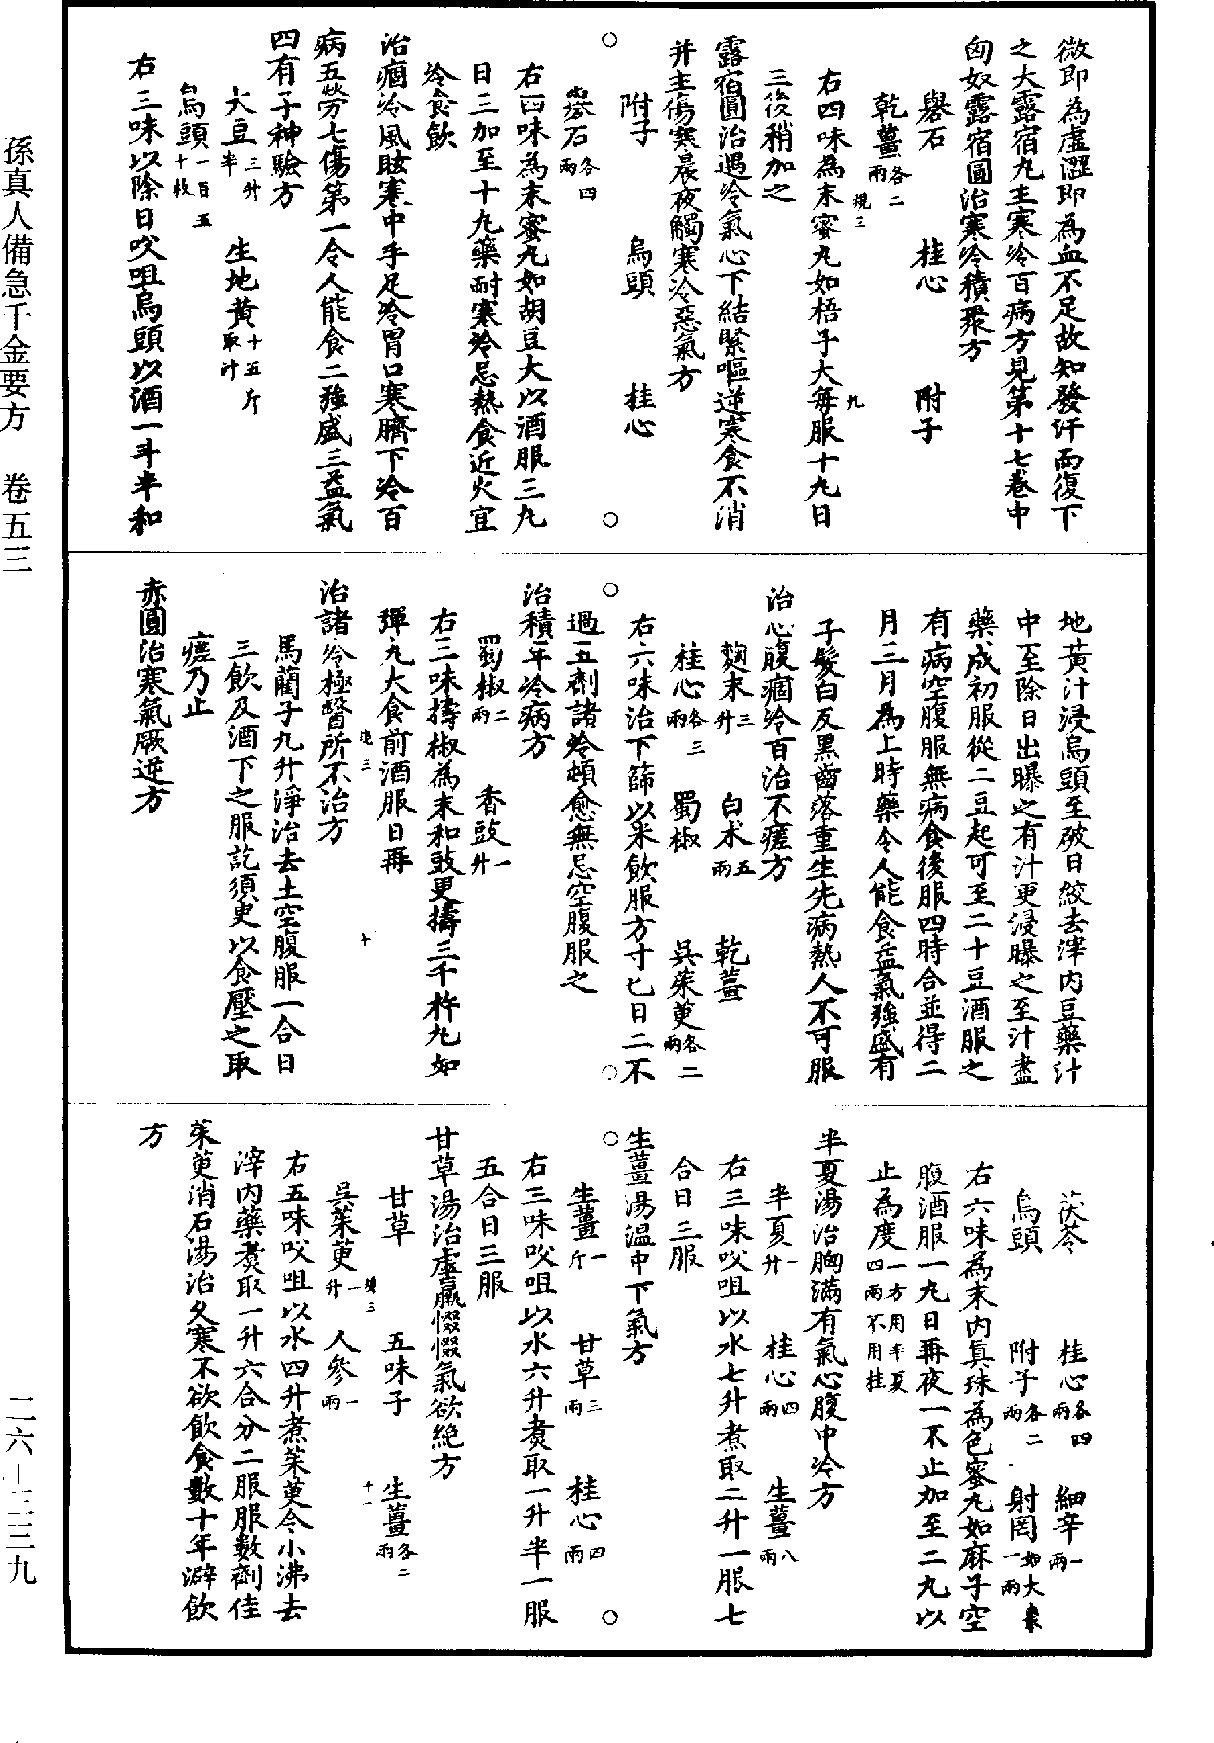 孫真人備急千金要方　卷五三
二六－三三九
微即為虛澀即為血不足故知發汗而復下
之大露宿丸主寒冷百病方見第十七卷中
匈奴露宿圓治寒冷積聚方
礜石　桂心　附子
乾薑各二兩
規三　九
右四味為末蜜丸如梧子大每服十丸日
三後稍加之
露宿圓治遇冷氣心下結緊嘔逆寒食不消
并主傷寒晨夜觸寒冷惡氣方
附子　烏頭　桂心
礜石各四兩
右四味為末蜜丸如胡豆大以酒服三丸
日三加至十丸藥耐寒冷忌熱食近火宜
冷食飲
治痼冷風眩寒中手足冷胃口寒臍下冷百
病五勞七傷第一令人能食二強盛三益氣
四有子神驗方
大豆三升半　生地黃十五斤取汁
烏頭一百五十枚
右三味以除日㕮咀烏頭以酒一斗半和
地黃汁浸烏頭至破日絞去滓內豆藥汁
中至除日出曝之有汁更浸曝之至汁盡
藥成初服從二豆起可至二十豆酒服之
有病空腹服無病食後服四時合並得二
月三月為上時藥令人能食益氣強盛有
子髮白反黑齒落重生先病熱人不可服
治心腹痼冷百治不瘥方
麴末三升　白朮五兩　乾薑
桂心各三兩　蜀椒　吳茱萸各二兩
右六味治下篩以米飲服方寸匕日二不
過五劑諸冷頓愈無忌空腹服之
治積年冷病方
蜀椒二兩　香豉一升
右三味擣椒為末和豉更擣三千杵丸如
彈丸大食前酒服日再
規三　十
治諸冷極醫所不治方
馬藺子九升淨治去土空腹服一合日
三飲及酒下之服訖須臾以食壓之取
瘥乃止
赤圓治寒氣厥逆方
茯苓　桂心各四兩　細辛一兩
烏頭　附子各二兩　射罔如大棗一兩
右六味為末內真珠為色蜜丸如麻子空
腹酒服一丸日再夜一不止加至二丸以
止為度一方用半夏四兩不用桂
半夏湯治胸滿有氣心腹中冷方
半夏一升　桂心四兩　生薑八兩
右三味㕮咀以水七升煮取二升一服七
合日三服
生薑湯溫中下氣方
生薑一斤　甘草三兩　桂心四兩
右三味㕮咀以水六升煮取一升半一服
五合日三服
甘草湯治虛羸惙惙氣欲絕方
甘草　五味子　生薑各二兩
吳茱萸一升　人參一兩
規三　十一
右五味㕮咀以水四升煮茱萸令小沸去
滓內藥煮取一升六合分二服服數劑佳
茱萸消石湯治久寒不欲飲食數十年澼飲
方